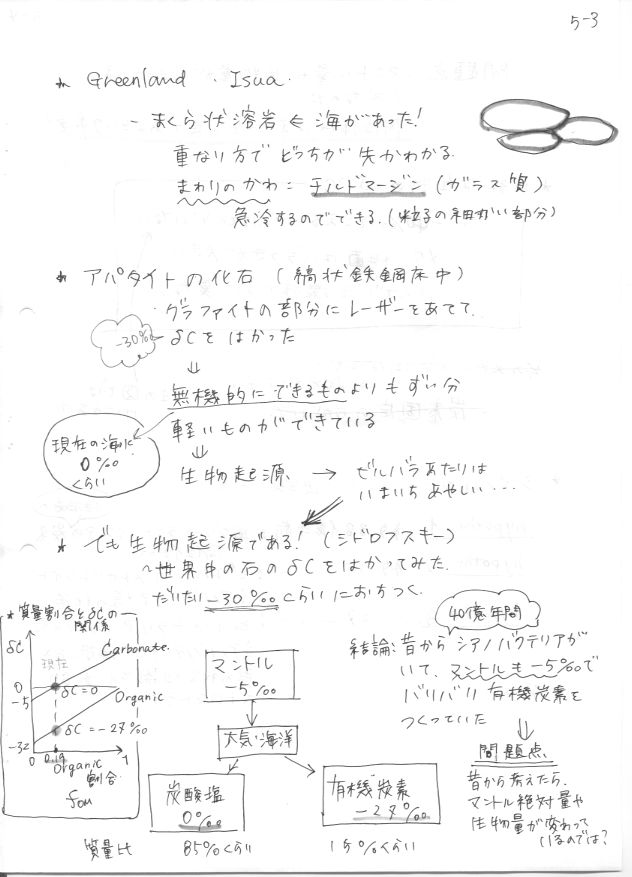 5-3
* Greenland ・Isua.
- まくら状溶岩 ⇐ 海があった!
重なり方で どっちが 先かわかる.
まわりのかわ = チルドマージン (ガラス質)
急冷するのでできる. (粒子の細かい部分)
* アパタイトの化石 (縞状鉄鋼床中)
・グラファイトの部分に レーザーをあてて.
-30‰
δCを はかった
⇓
無機的にできるものよりもずい分
軽いものができている
現在の海は
0‰
くらい
⇓
生物起源 → ピルバラあたりは
いまいち あやしい・・・
* でも生物起源である! (シドロフスキー)
~世界中の石のδCをはかってみた.
だいたい -30‰くらいにおちつく.
*質量割合とδCの
関係
δC
Carbonate.
現在
0
δC=0
-5
Organic
δC=-27‰
-32
0 0.19 1
Organic
割合
fom
マントル
-5‰
大気・海洋
炭酸塩
0‰
有機炭素
-27‰
質量比 85%くらい 15%くらい
40億年間
結論: 昔から シアノバクテリアが
いて、マントルも-5‰で
バリバリ 有機炭素を
つくっていた
⇓
問題点
昔から考えたら.
マントル絶対量や
生物量が変わって
いるのでは?